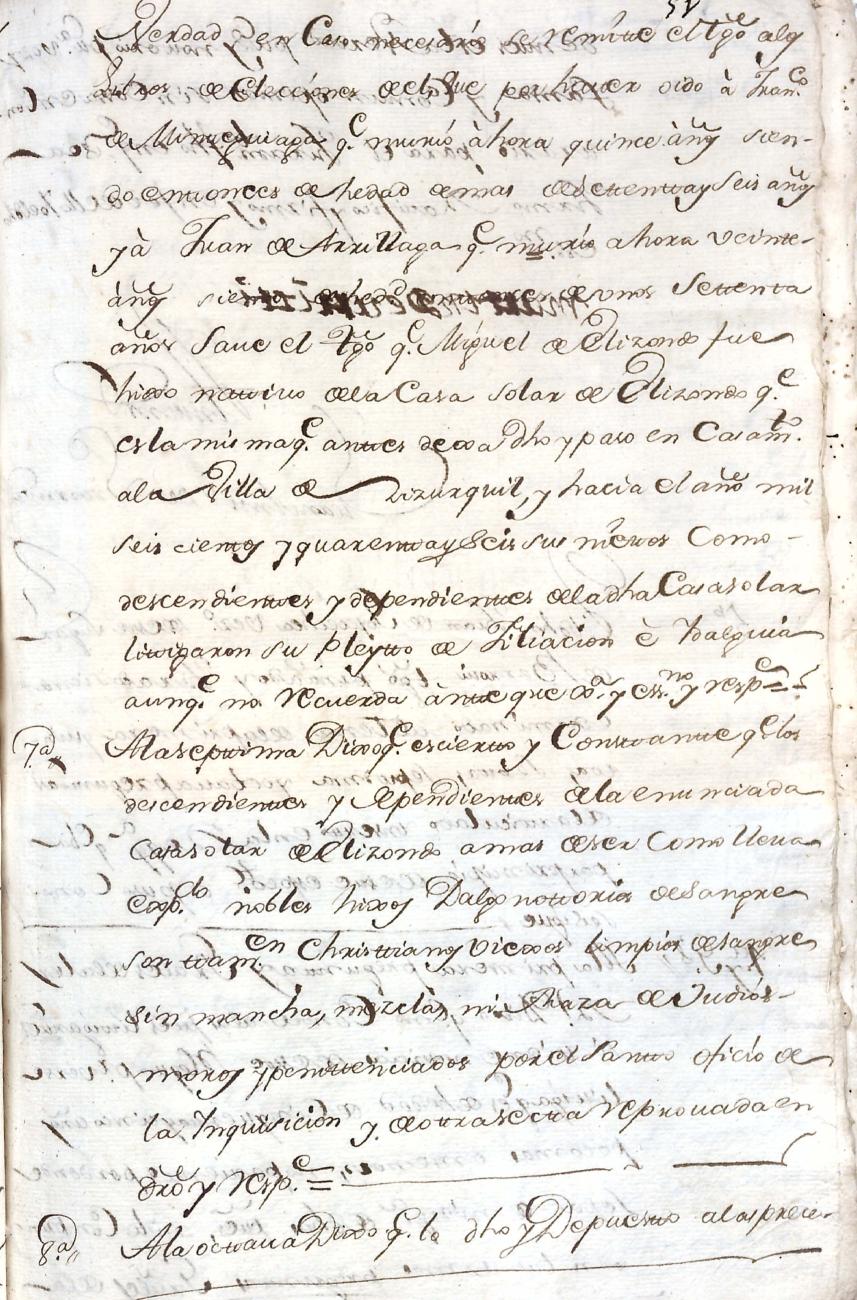 Verdad y en Caso necesario se remite el tg̃o alos
libros de Elecciones de el, que por haver oido à Fran.co
de Minteguiaga q.e murió àhora quince àñs sien-
do entonces de hedad de mas de settenta y seis añs
y à Juan de Arrillaga q.e murio ahora veinte
àñs siendo de unos Settenta
años Save el tg̃o q.e Miguel de Elizondo fue
hixo nativo de la Casa solar de Elizondo q.e
es la misma q.e antes dexa dho y paso en Casam.to
ala Villa de Lizurquil, y hacia el año mil
seis cientos y quarenta y Seis sus nietos Como
descendientes y dependientes dela dha Casa solar
litigaron su Pleyto de Filiacion è Hidalguia
aunq.e no recuerda ànte que y ess.no y resp.e =
7.a Ala septima Dixo q.e es cierto y Constante q.e los
descendientes y dependientes dela enunciada
Casa solar de Elizondo a mas de ser Como lleva
exp.do nobles hixos Dalgo notorios de Sangre
son tam.en Christianos viexos limpios de sangre
sin mancha, mezcla, ni Rhaza de Judios
moros y penitenciados por el Santo oficio de
la Inquisicion y de otra secta reprovada en
dro y resp.e =
8.a Ala octava Dixo q.e lo dho y Depuesto alas prece-